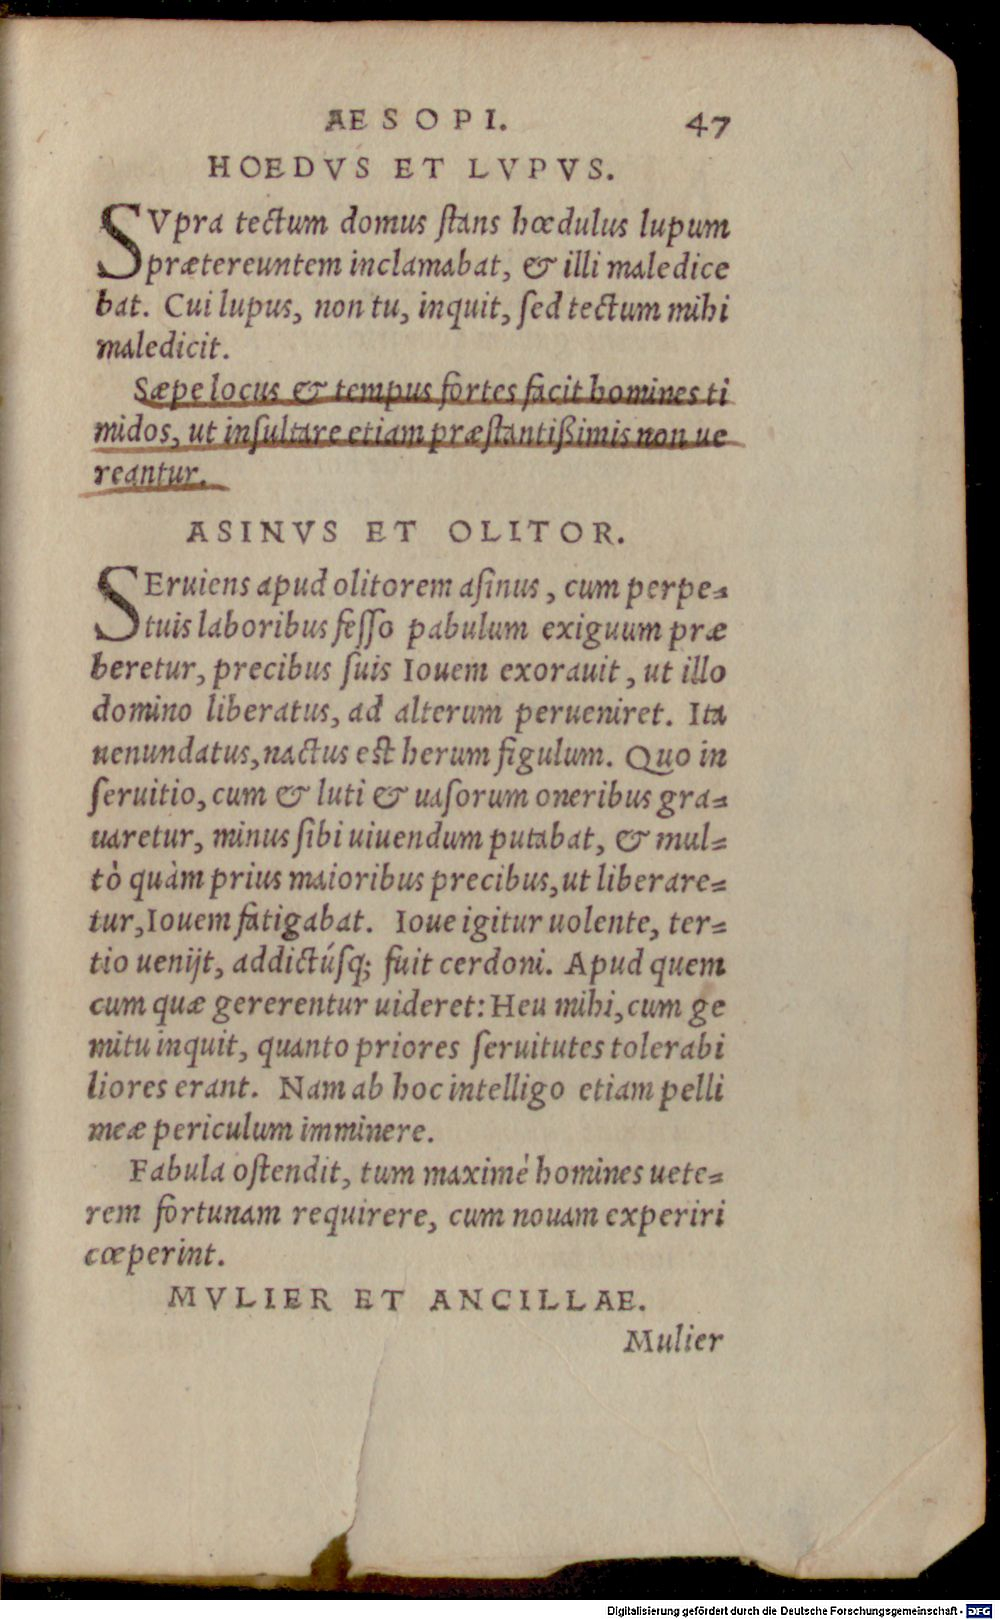 AESOPI. 47
HOEDVS ET LVPVS.
SVpra tectum domus ſtans hœdulus lupum
prætereuntem inclamabat, & illi maledice
bat. Cui lupus, non tu, inquit, ſed tectum mihi
maledicit.
Sæpe locus & tempus fortes facit homines ti
midos, ut inſultare etiam præſtantißimis non ue
reantur.
ASINVS ET OLITOR.
SEruiens apud olitorem aſinus, cum perpe=
tuis laboribus feſſo pabulum exiguum præ
beretur, precibus ſuis Iouem exorauit, ut illo
domino liberatus, ad alterum perueniret. Ita
uenundatus, nactus est herum figulum. Quo in
ſeruitio, cum & luti & uaſorum oneribus gra=
uaretur, minus ſibi uiuendum putabat, & mul=
tò quàm prius maioribus precibus, ut liberare=
tur, Iouem fatigabat. Ioue igitur uolente, ter=
tio uenijt, addictúſq; fuit cerdoni. Apud quem
cum quæ gererentur uideret: Heu mihi, cum ge
mitu inquit, quanto priores ſeruitutes tolerabi
liores erant. Nam ab hoc intelligo etiam pelli
meæ periculum imminere.
Fabula oſtendit, tum maximè homines uete=
rem fortunam requirere, cum nouam experiri
cœperint.
MVLIER ET ANCILLAE.
Mulier
Digitalisierung gefördert durch die Deutsche Forschungsgemeinschaft - DFG